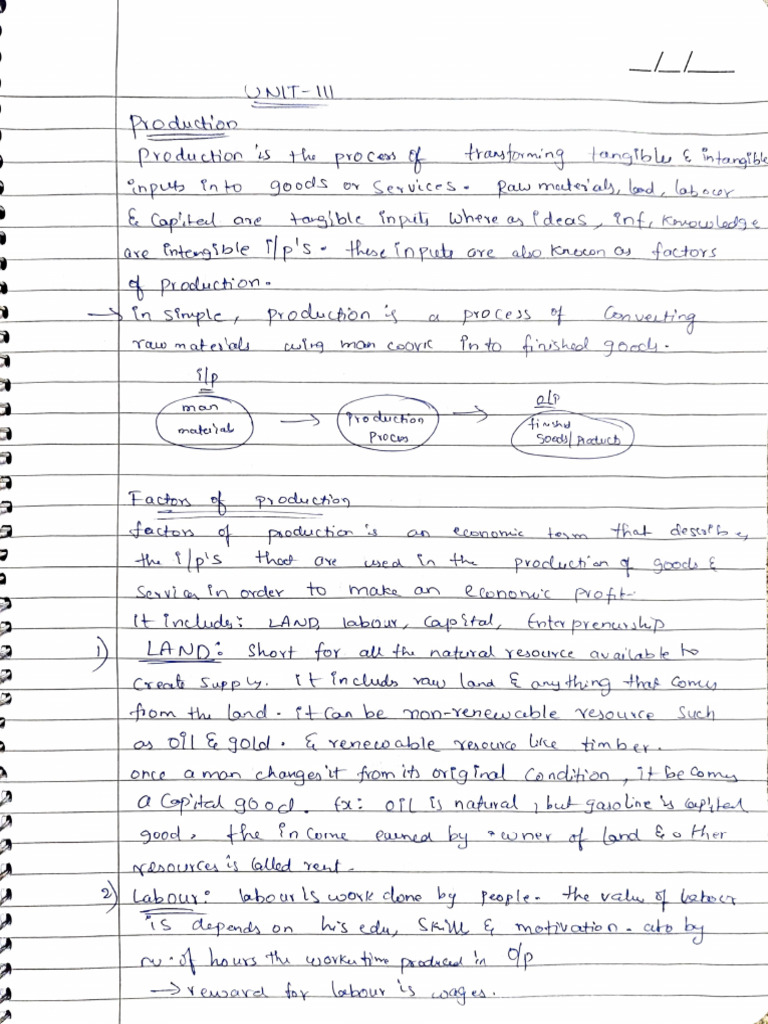 _/_/__
UNIT-III
Production
Production is the process of transforming tangible & intangible
inputs into goods or services. Raw materials, land, labour
& Capital are tangible inputs where as ideas, inf, knowledge
are intengible i/p's. these inputs are also known as factors
of production.
→ in simple, production is a process of Converting
raw materials using man work in to finished goods.
i/p
man
material
→
production
Process
→
o/p
finished
goods/products
Factors of production
factors of production is an economic term that describes
the i/p's that are used in the production of goods &
Services in order to make an economic profit.
It includes: LAND, labour, Capital, Enterprenurship
1) LAND: Short for all the natural resource available to
Create supply. it includs raw land & anything that comes
from the land. it can be non-renewable resource such
as oil & gold. & renewable resource like timber.
once a man changes it from its original condition, it becomes
a capital good. Ex: oil is natural, but gasoline is capital
good. the income earned by owner of land & other
resources is called rent.
2) Labour: labour is work done by people. the value of labour
is depends on his edu, skill & motivation. also by
no. of hours the worker time produced in o/p
→ reward for labour is wages.